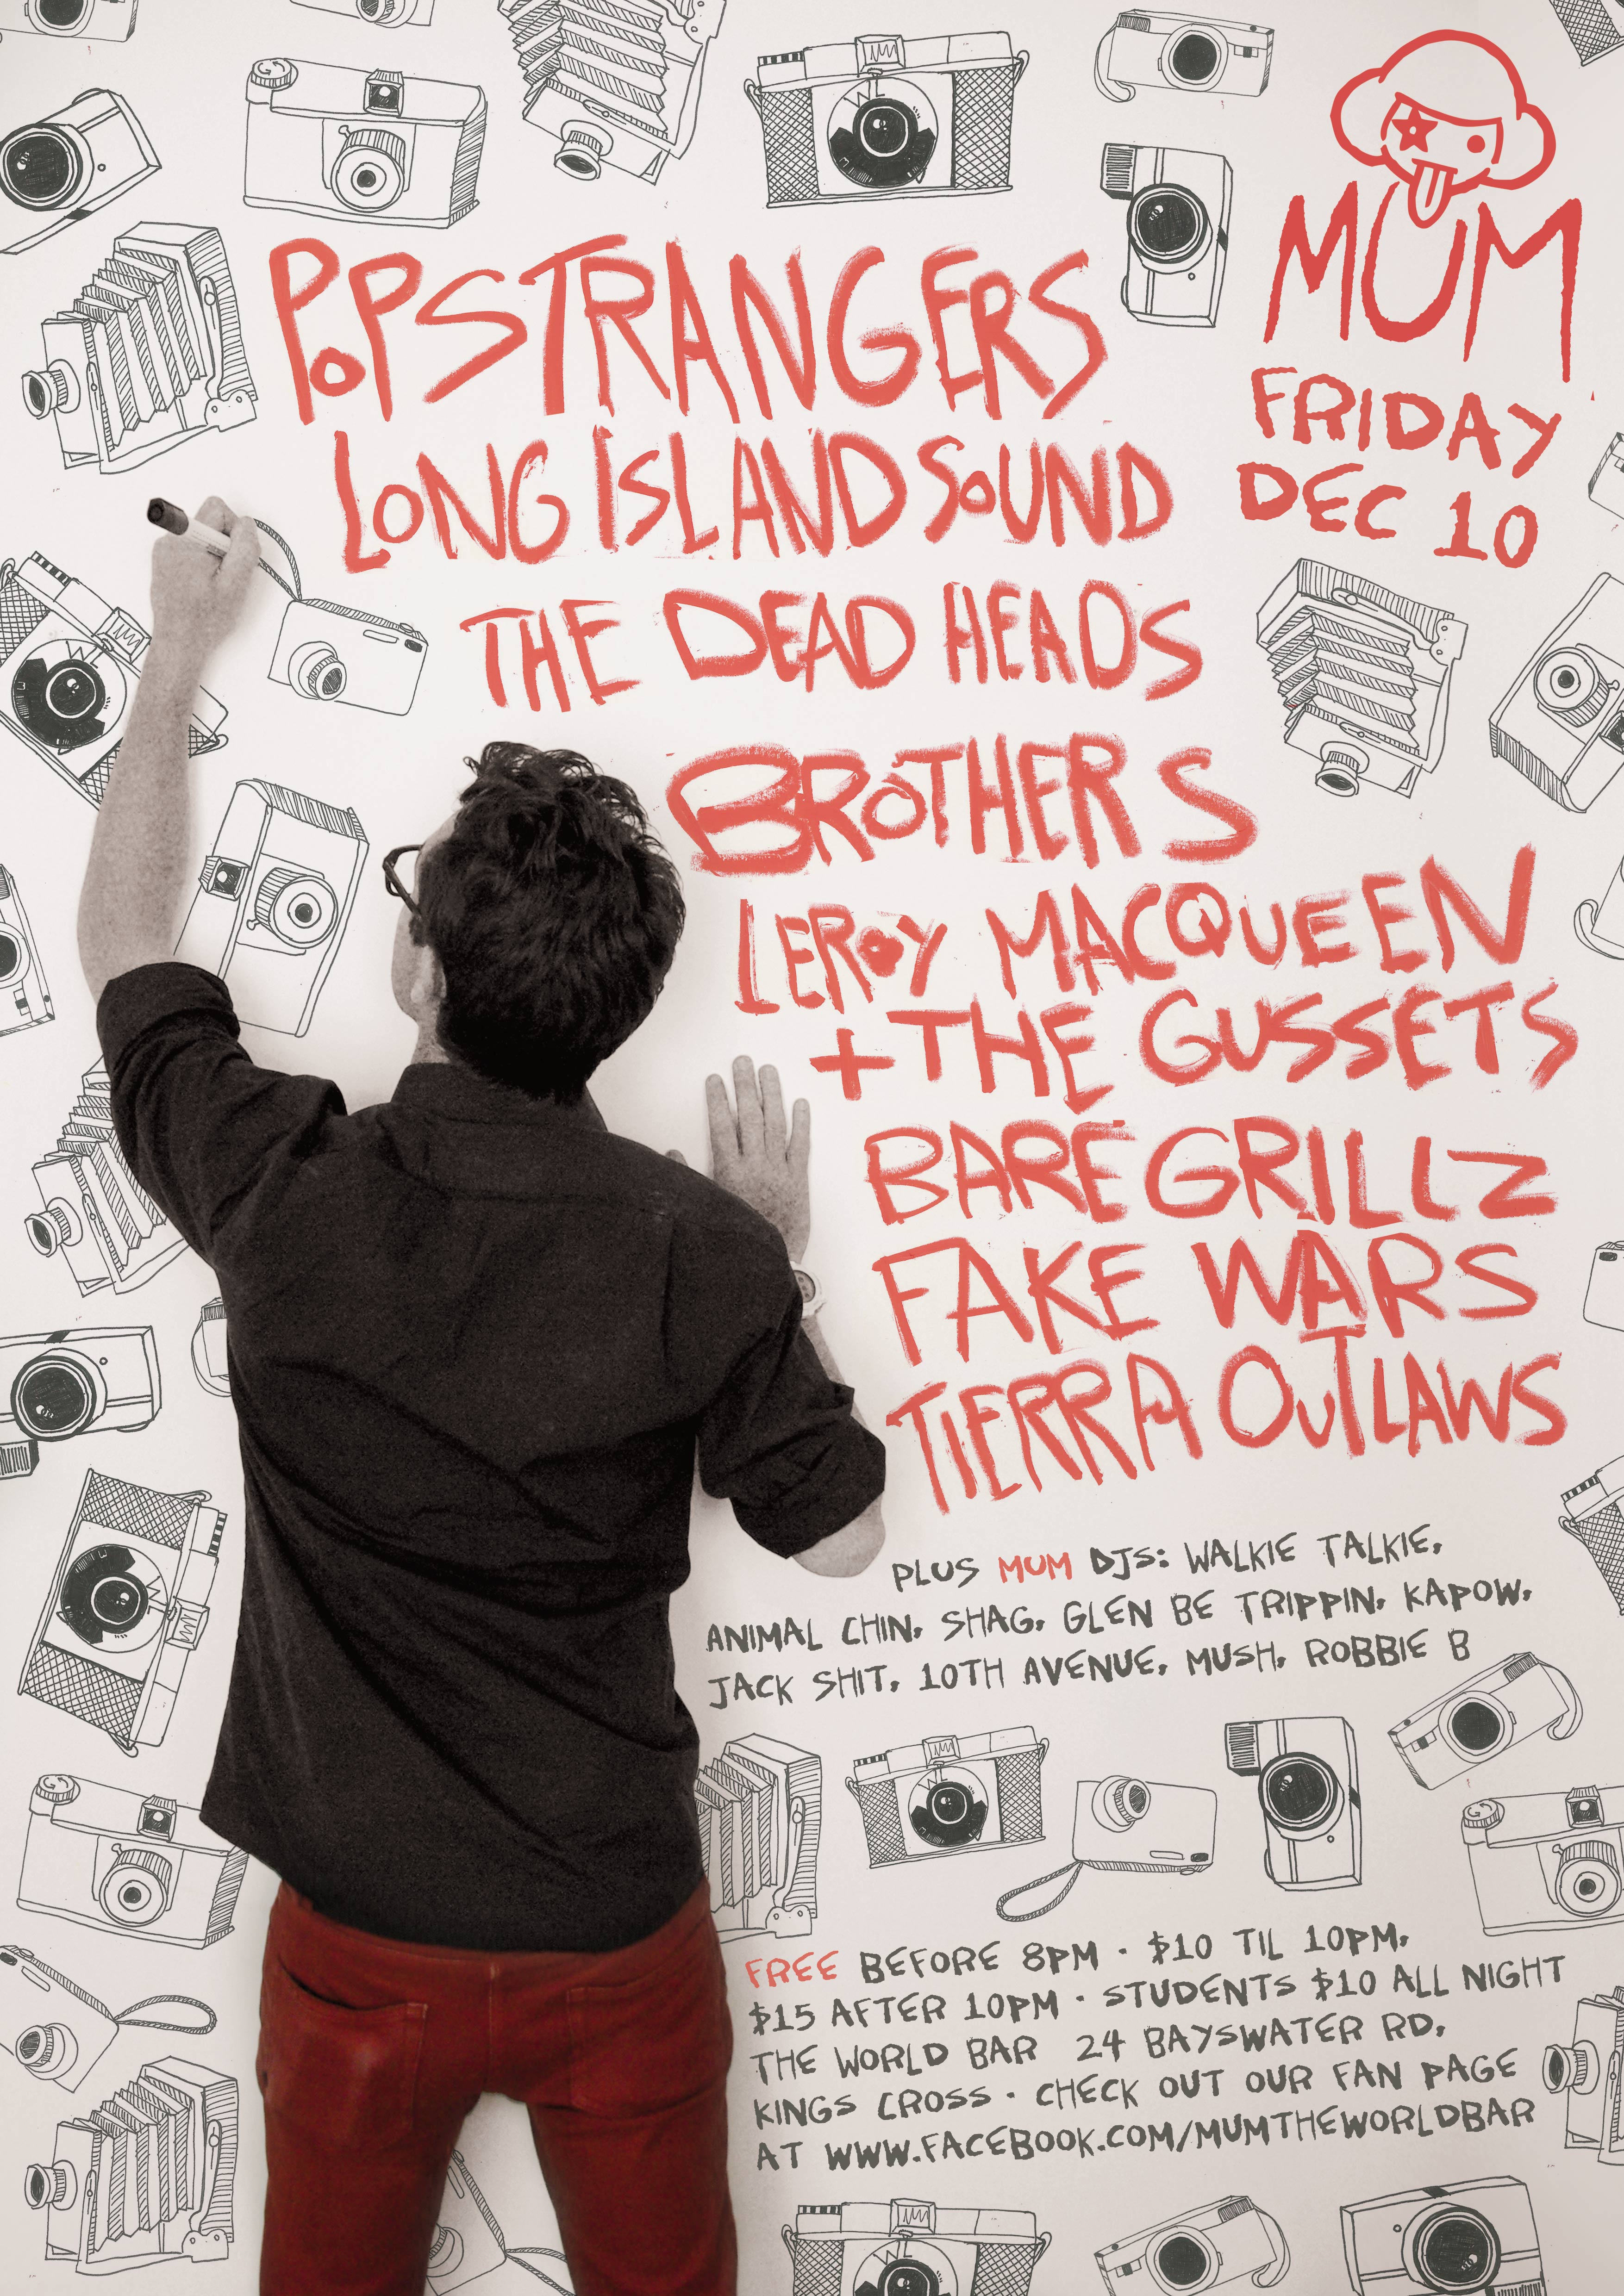 MUM
FRIDAY
DEC 10
POPSTRANGERS
LONG ISLAND SOUND
THE DEAD HEADS
BROTHERS
LEROY MACQUEEN
+ THE GUSSETS
BARE GRILLZ
FAKE WARS
TIERRA OUTLAWS
PLUS MUM DJS: WALKIE TALKIE,
ANIMAL CHIN, SHAG, GLEN BE TRIPPIN, KAPOW,
JACK SHIT, 10TH AVENUE, MUSH, ROBBIE B
FREE BEFORE 8PM · $10 TIL 10PM,
$15 AFTER 10PM · STUDENTS $10 ALL NIGHT
THE WORLD BAR 24 BAYSWATER RD,
KINGS CROSS · CHECK OUT OUR FAN PAGE
AT WWW.FACEBOOK.COM/MUMTHEWORLDBAR